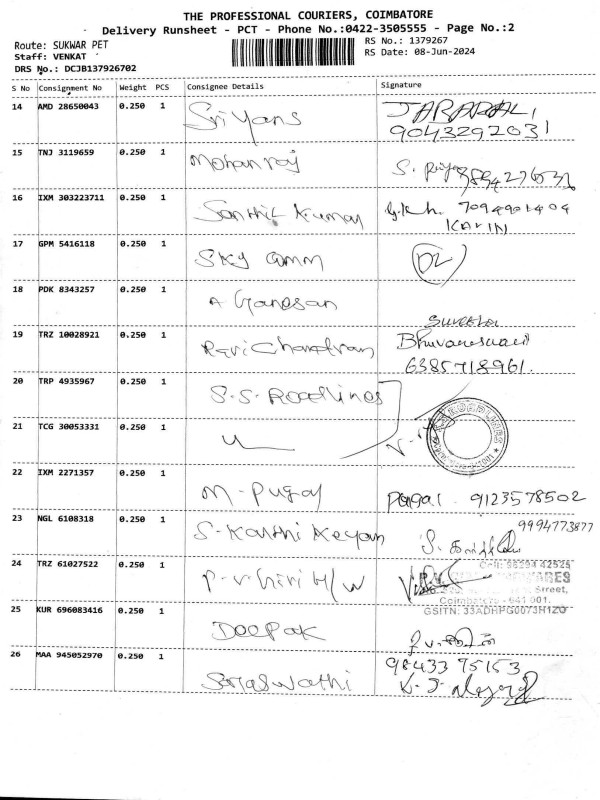 THE PROFESSIONAL COURIERS, COIMBATORE
Delivery Runsheet - PCT - Phone No.:0422-3505555 - Page No.:2
Route: SUKWAR PET
RS No.: 1379267
Staff: VENKAT
RS Date: 08-Jun-2024
DRS No.: DCJB137926702
S No Consignment No Weight PCS Consignee Details Signature
14 AMD 28650043 0.250 1 Sri Yans
9043292031
15 TNJ 3119659 0.250 1 Mohan raj S.
16 IXM 303223711 0.250 1 Senthil Kumar 7094901404
17 GPM 5416118 0.250 1 SKY Comm
18 PDK 8343257 0.250 1 A Ganesan
19 TRZ 10028921 0.250 1 Ravi Chandran Bhuvaneswari
6385718961.
20 TRP 4935967 0.250 1 S.S. Roadlines
21 TCG 30053331 0.250 1
22 IXM 2271357 0.250 1 M. Pugay Pagal. 9123578502
23 NGL 6108318 0.250 1 S. Karthi Keyan 9994773877
24 TRZ 61027522 0.250 1 P.V. Giri H/W
Cell: 98294 42525
Street,
Coimbatore - 641 001.
GSITN: 33ADHPG0073H1ZO
25 KUR 696083416 0.250 1 DEEPAK
26 MAA 945052970 0.250 1 Saraswathi 98433 75153